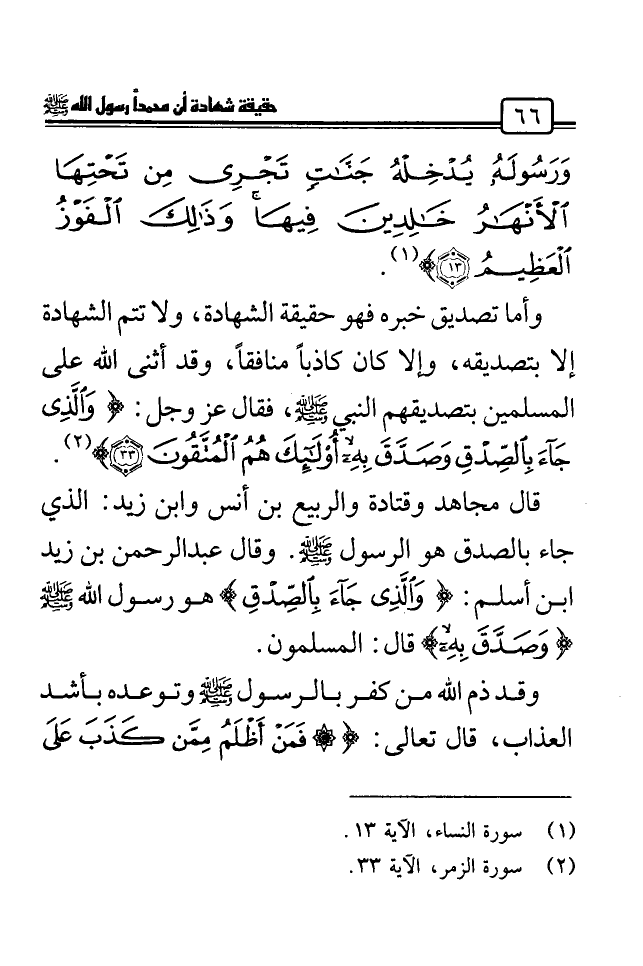 ٦٦
حقيقة شهادة أن محمداً رسول الله ﷺ
وَرَسُولَهُۥ يُدْخِلْهُ جَنَّـٰتٍ تَجْرِى مِن تَحْتِهَا
ٱلْأَنْهَـٰرُ خَـٰلِدِينَ فِيهَا ۚ وَذَٰلِكَ ٱلْفَوْزُ
ٱلْعَظِيمُ ۝١٣﴾(١).
وأما تصديق خبره فهو حقيقة الشهادة، ولا تتم الشهادة
إلا بتصديقه، وإلا كان كاذباً منافقاً، وقد أثنى الله على
المسلمين بتصديقهم النبي ﷺ، فقال عز وجل: ﴿ وَٱلَّذِى
جَآءَ بِٱلصِّدْقِ وَصَدَّقَ بِهِۦٓ ۙ أُو۟لَـٰٓئِكَ هُمُ ٱلْمُتَّقُونَ ۝٣٣﴾(٢).
قال مجاهد وقتادة والربيع بن أنس وابن زيد: الذي
جاء بالصدق هو الرسول ﷺ. وقال عبدالرحمن بن زيد
ابن أسلم: ﴿ وَٱلَّذِى جَآءَ بِٱلصِّدْقِ ﴾ هو رسول الله ﷺ
﴿ وَصَدَّقَ بِهِۦٓ ۙ﴾ قال: المسلمون.
وقد ذم الله من كفر بالرسول ﷺ وتوعده بأشد
العذاب، قال تعالى: ﴿ ۞ فَمَنْ أَظْلَمُ مِمَّن كَذَبَ عَلَى
(١) سورة النساء، الآية ١٣.
(٢) سورة الزمر، الآية ٣٣.